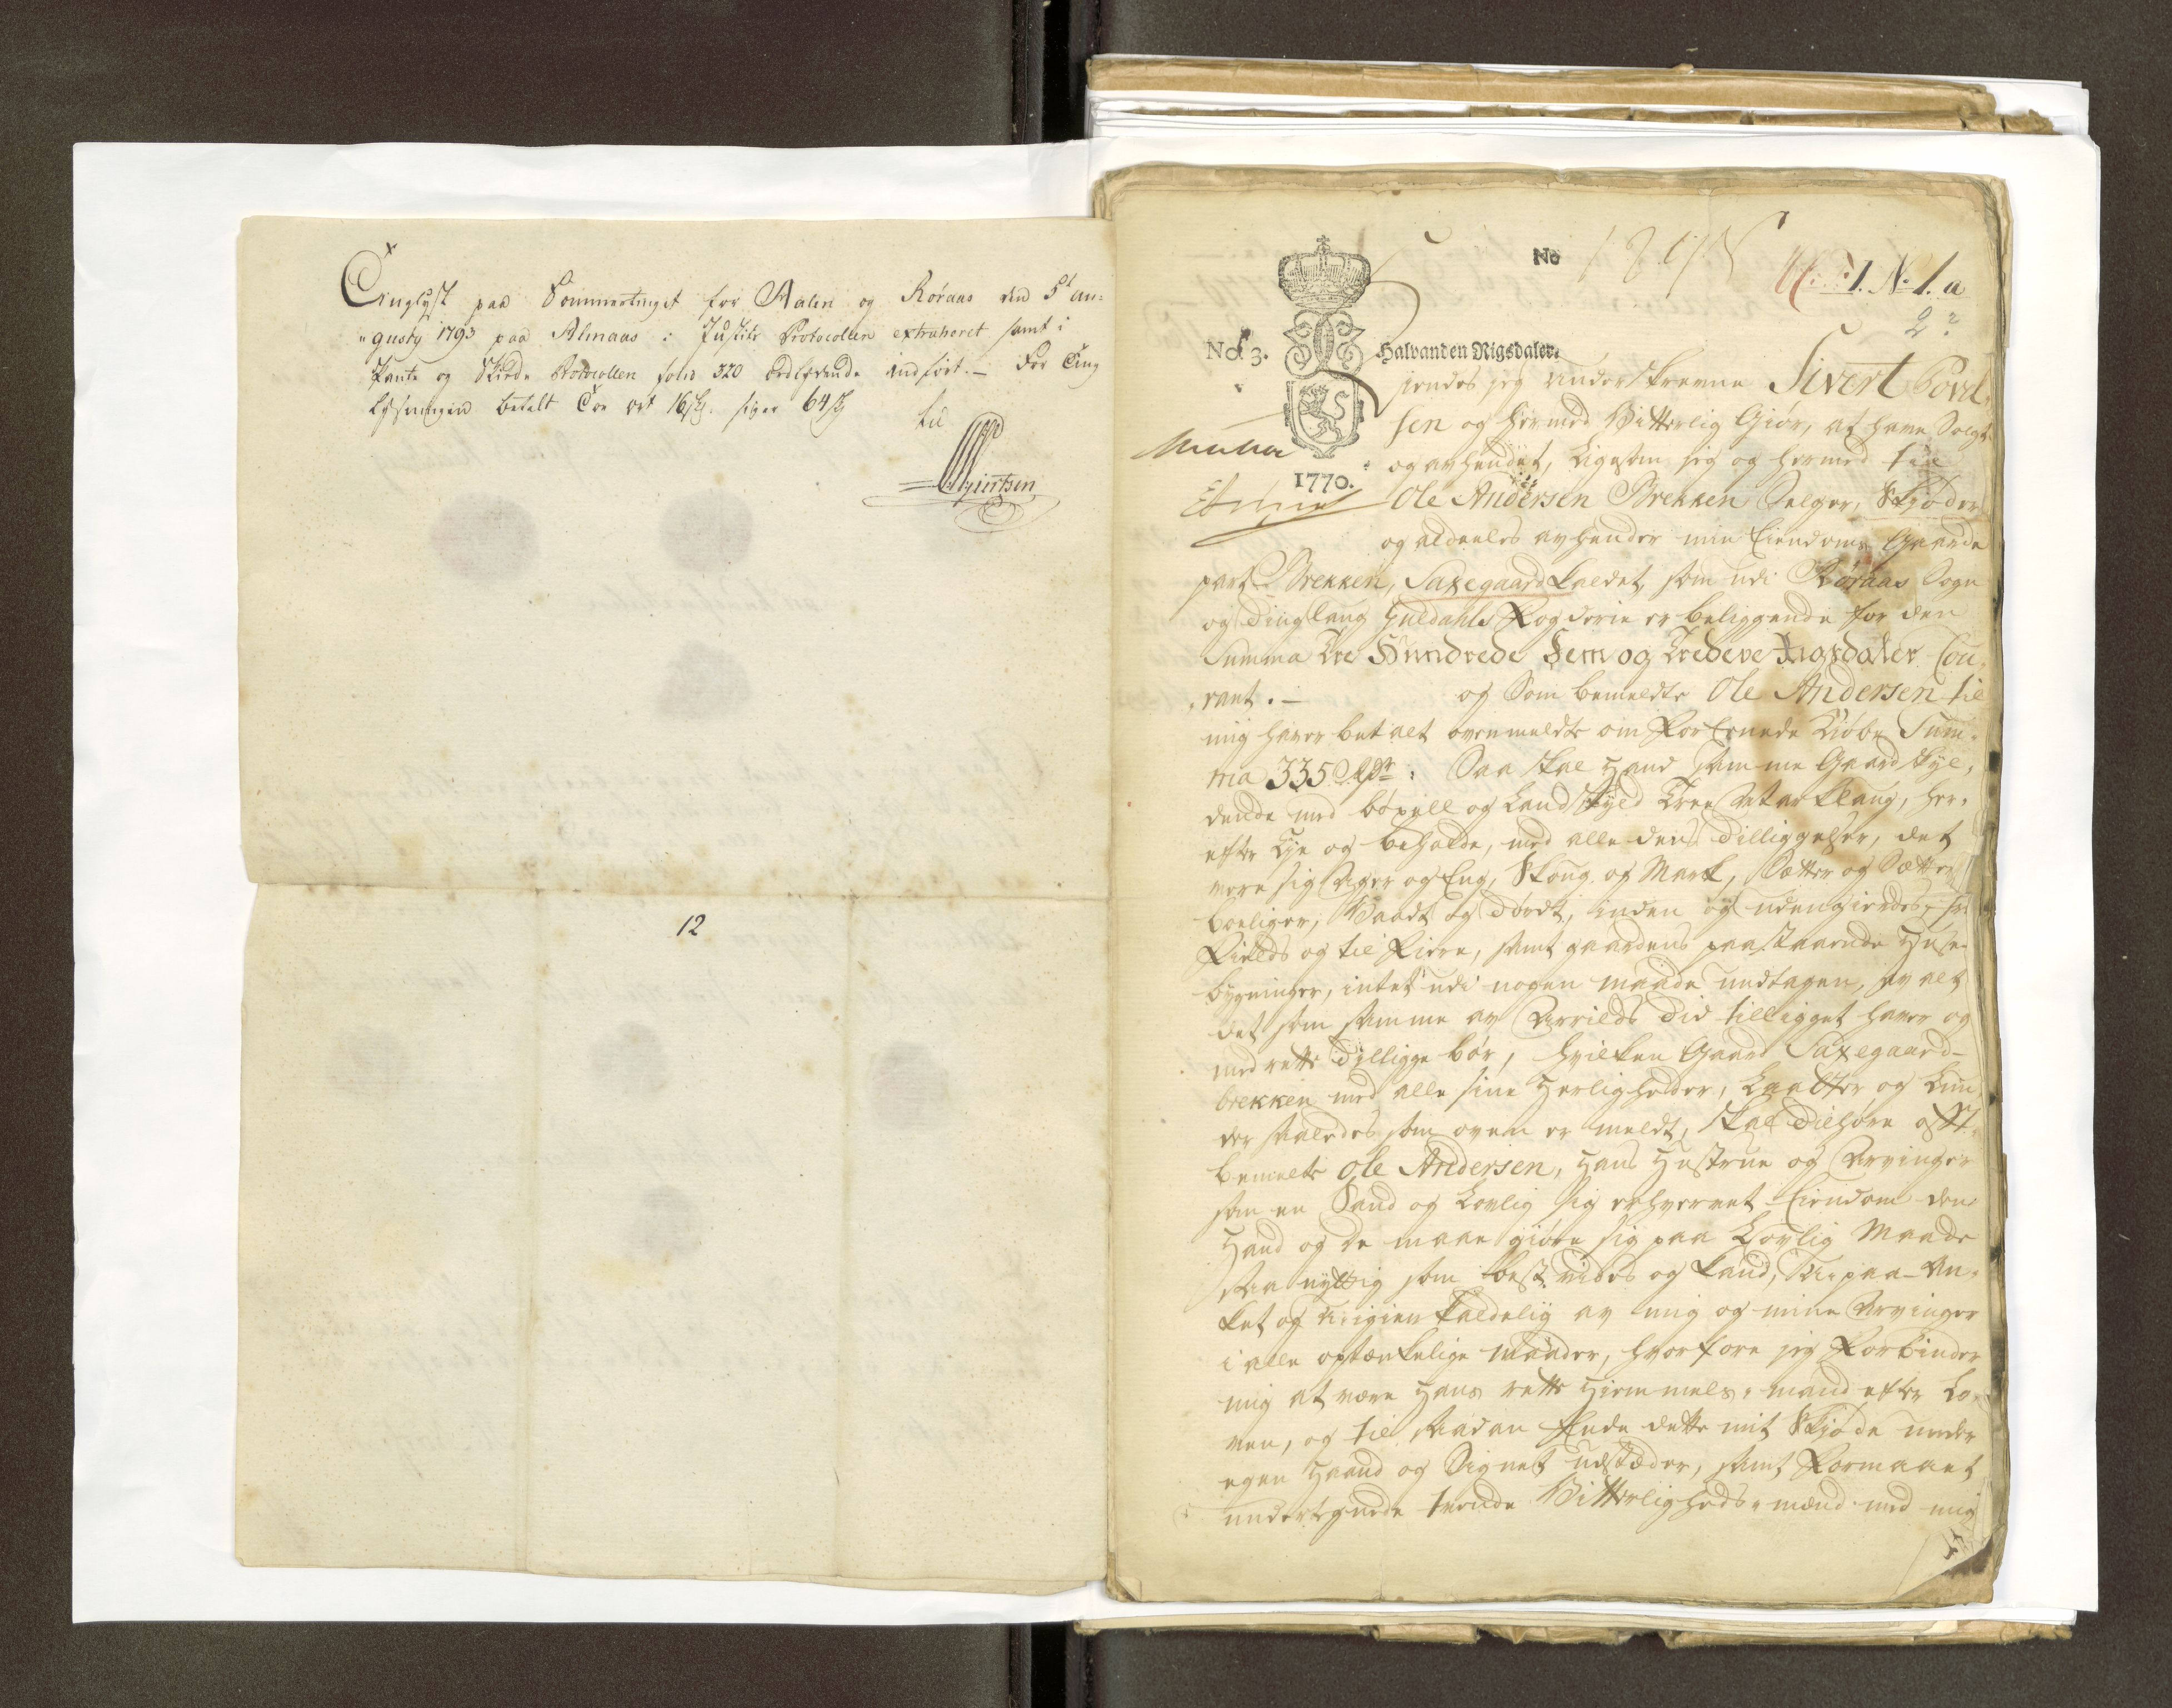 Tinglyst paa Sommertinget for Aalen og Röraas den 5t au=
"gusty 1793 paa Almaas : Justits Protocollen extraheret samt i
Pante og Skiöde Protocollen folio 320 ordlydende indført. – For Ting
lysningen betalt Toe ort 16 s. siger 64 s
12
No
1. No 1. a
2
No. 3.
Halvanden Rigsdaler.
1770.
Kiendes jeg underskrevne Sivert Povel-
sen og hermed Vitterlig Giør, at have Solgt
og avhendet, ligesom jeg og hermed til
Ole Andersen Brekken Selger, Skjøder
og aldeeles avhender min Eiendoms Gaarde
part Brekken, Saxegaard kaldet, som udi Røraas Sogn
og Dinglaug Guldahls Fogderie er beliggende for den
Summa Tre Hundrede Fem og Tredeve Rigsdaler Cou-
rant. – og Som bemeldte Ole Andersen til
mig haver betalt ovenmeldte om Forenede Kiøbe Sum-
ma 335 Rdr : Saa skal Hand samme Gaard skyl-
dende med bøxell og Landskyld Tree Øet. klaug, her-
efter Eje og beholde, med alle dens Tilliggelser, det
være sig Ager og Eng, Skoug og Mark, Sætter og Sætter
boeliger, Vaadt og Tørdt, inden og uden gierdes, fra
Fields og til Fiere, samt gaardens paastaaende Huse-
bygninger, intet udi nogen maade undtagen, av alt
det som samme av Arrilds Tid tilligget haver og
med rette Tilligge bør, hvilken Gaard Saxegaard-
brekken med alle sine Herligheder, Laatter og Lun-
der saaledes som oven er meldt, skal Tilhøre offt-
bemelte Ole Andersen, Hans Hustrue og Arvinger
som en Sand og Lovlig sig erhvervet Eiendom den
Hand og de maae giøre sig paa Lovlig Maade
saa nyttig som best vides og kand, U-paa-An-
ket og U-igienkaldelig av mig og mine Arvinger
i alle optænkelige maader, hvorfore jeg Forbinder
mig at være Hans rette Hiemmels-mand efter Lo-
ven, og til saadan Ende dette mit Skjøde under
egen Haand og Signet udstæder, samt Formaaet
undertegnede tvende Vitterligheds-mænd med mig